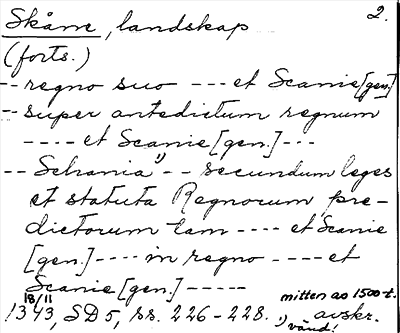 Skåne, landskap 2.
(forts.)
-- regno suo --- et Scanie [gen]
-- super antedictum regnum
---- et Scanie [gen.] ---
-- Schania¹⁾ -- secundum leges
et statuta Regnorum pre-
dictorum tam ---- et Scanie
[gen.] ---- in regno ---- et
Scanie [gen.] -----
18/11 mitten av 1500-t.
1343, SD 5, ss. 226-228. ¹⁾ avskr.
vänd!